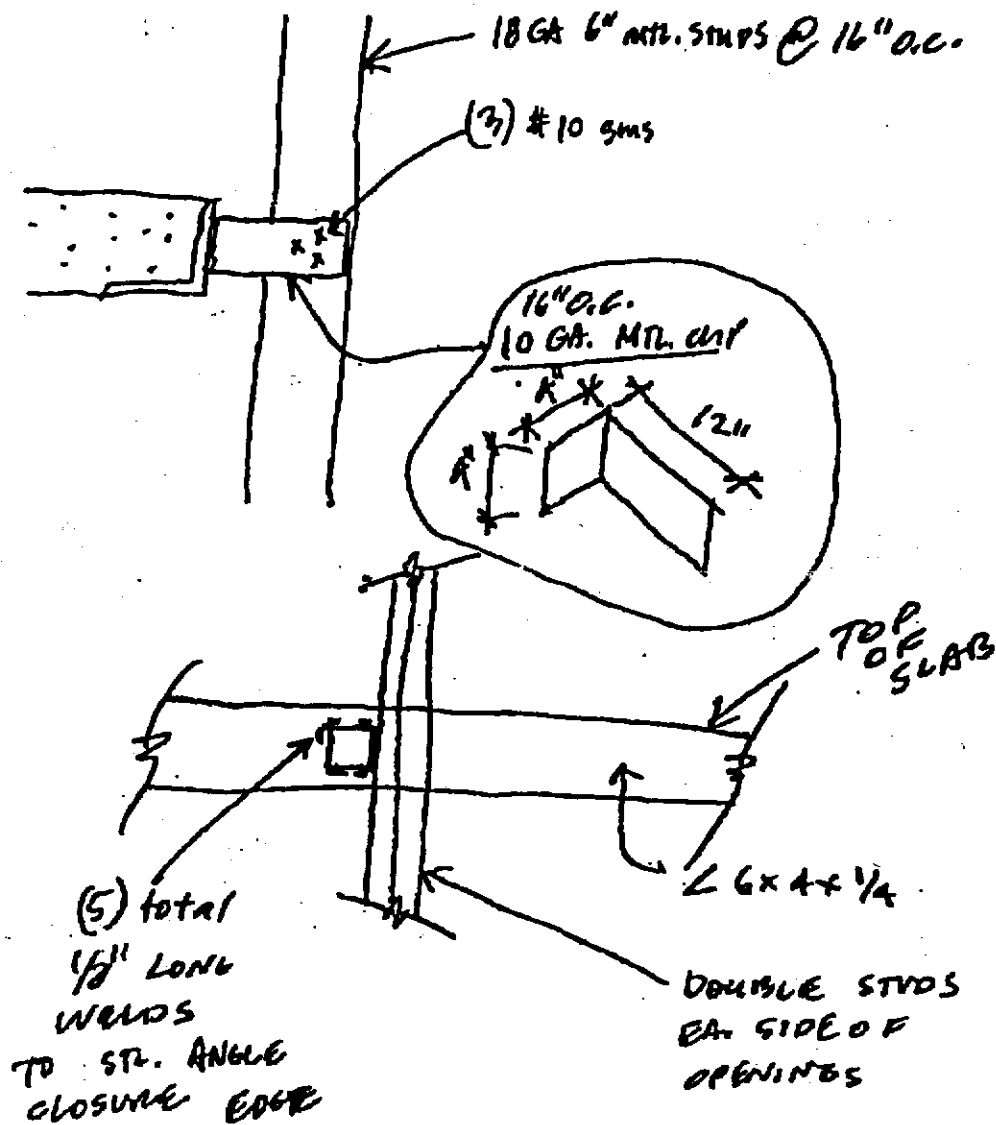 18 GA 6" MTL. STUDS @ 16" O.C.
(3) #10 SMS
16" O.C.
10 GA. MTL. CLIP
4"
12"
4"
TOP
OF
SLAB
(5) total
1/2" LONG
WELDS
TO STL. ANGLE
CLOSURE EDGE
∠ 6 x 4 x 1/4
DOUBLE STUDS
EA. SIDE OF
OPENINGS